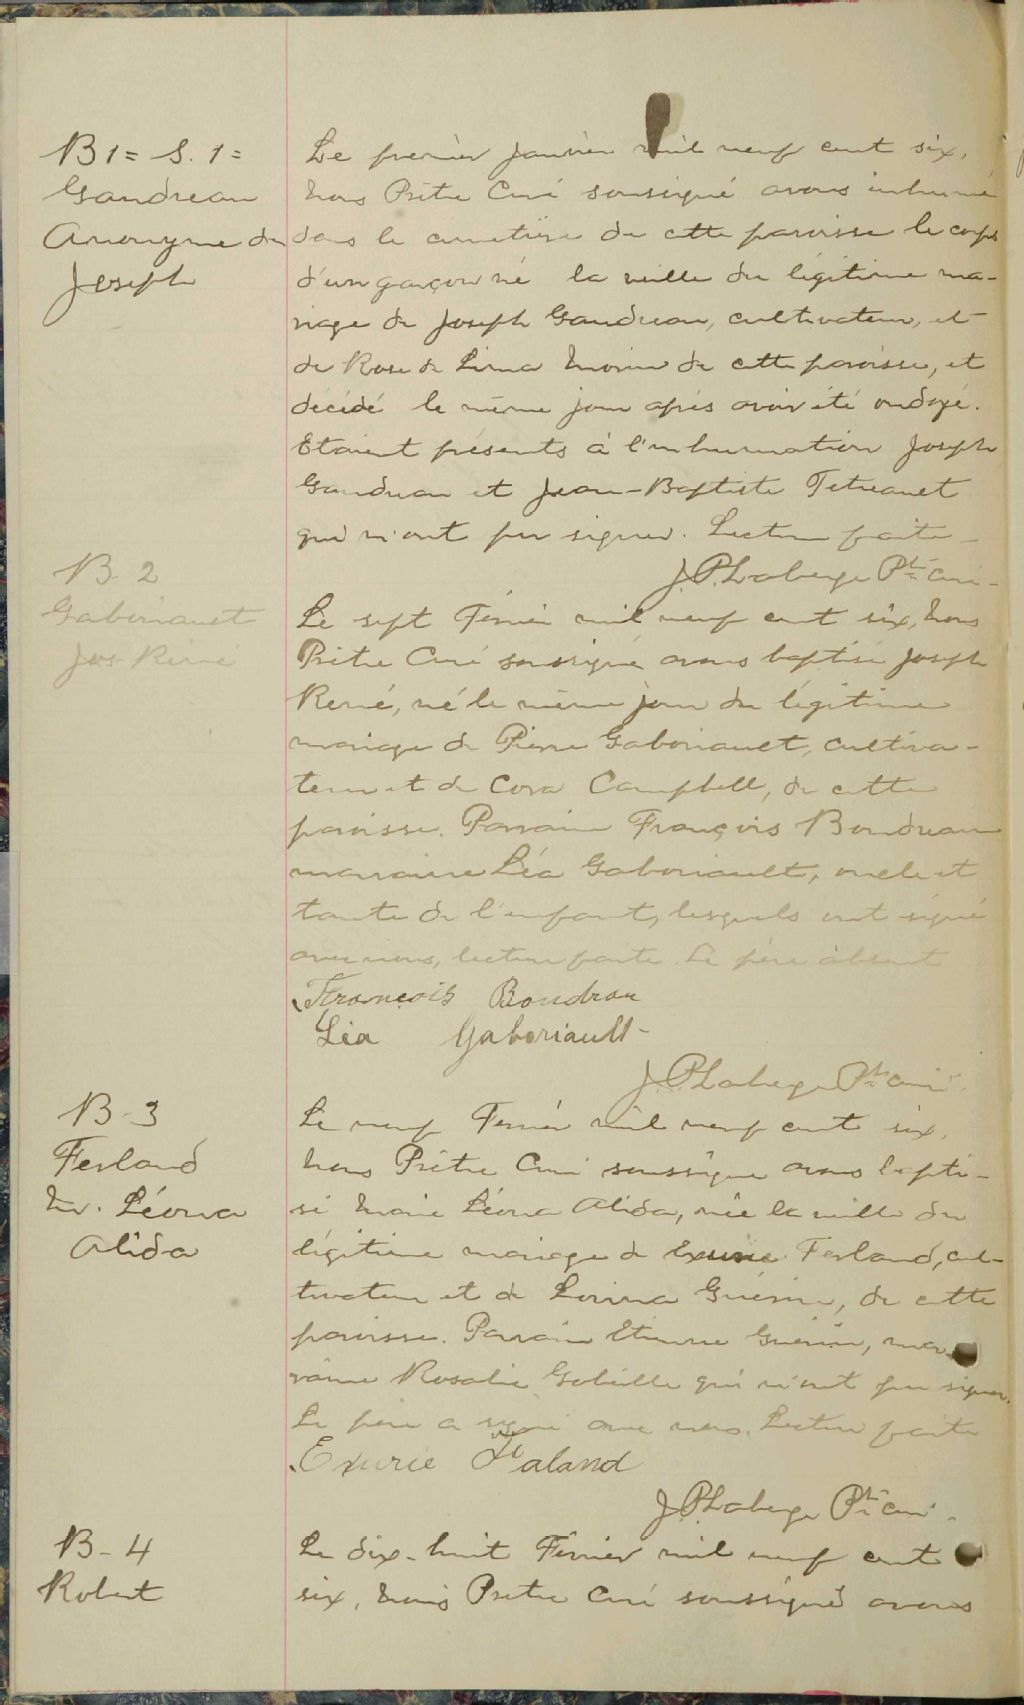 B 1= S. 1=
Gaudreau
Anonyme de
Joseph
Le premier Janvier mil neuf cent six,
Nous Prêtre Curé soussigné avons inhumé
dans le cimetière de cette paroisse le corps
d'un garçon né la veille du légitime ma-
riage de Joseph Gaudreau, cultivateur, et
de Rose de Lima Morin de cette paroisse, et
décédé le même jour après avoir été ondoyé.
Etaient présents à l'inhumation Joseph
Gaudreau et Jean-Baptiste Tetreault
qui n'ont pu signer. Lecture faite
J. P. Laberge Ptre curé
B 2
Gaboriault
Jos René
Le sept Février mil neuf cent six, Nous
Prêtre Curé soussigné avons baptisé Joseph
René, né le même jour du légitime
mariage de Pierre Gaboriault, cultiva-
teur et de Cora Campbell, de cette
paroisse. Parrain François Boudreau
marraine Léa Gaboriault, oncle et
tante de l'enfant, lesquels ont signé
avec nous, lecture faite. Le père absent
François Boudreau
Léa Gaboriault
J. P. Laberge Ptre curé
B-3
Ferland
M. Léona
Alida
Le neuf Février mil neuf cent six,
Nous Prêtre Curé soussigné avons bapti-
sé Marie Léona Alida, née la veille du
légitime mariage de Exurie Ferland, cul-
tivateur et de Lorina Guérin, de cette
paroisse. Parrain Etienne Guérin, mar-
raine Rosalie Gobeille qui n'ont pu signer.
Le père a signé avec nous. Lecture faite
Exurie Faland
J. P. Laberge Ptre curé
B-4
Robert
Le dix-huit Février mil neuf cent
six, Nous Prêtre Curé soussigné avons